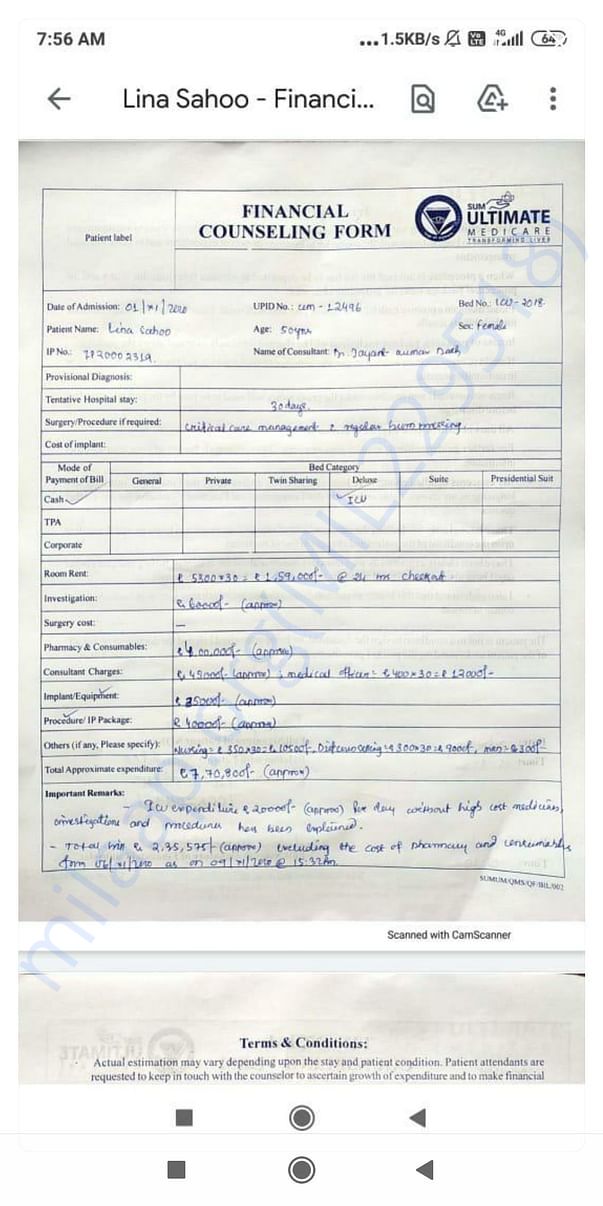 7:56 AM
...1.5KB/s Vo LTE 4G 64
Lina Sahoo - Financi...
Patient label
FINANCIAL
COUNSELING FORM
SUM
ULTIMATE
MEDICARE
TRANSFORMING LIVES
Date of Admission: 01/XI/2020 UPID No.: um-12496 Bed No.: ICU-2018.
Patient Name: Lina Sahoo Age: 50yrs Sex: Female
IP No.: IP20002319. Name of Consultant: Dr. Jayant Kumar Dash
Provisional Diagnosis:
Tentative Hospital stay: 30 days.
Surgery/Procedure if required: critical care management & regular burn dressing.
Cost of implant:
Mode of Payment of Bill Bed Category
General Private Twin Sharing Deluxe Suite Presidential Suit
Cash ICU
TPA
Corporate
Room Rent: ₹ 5300×30 = ₹ 1,59,000/- @ 24 hrs checkout.
Investigation: ₹ 60000/- (approx)
Surgery cost: —
Pharmacy & Consumables: ₹ 4,00,000/- (approx)
Consultant Charges: (approx) ; medical = ₹400×30 = ₹ 12000/-
Implant/Equipment: ₹ 35000/- (approx)
Procedure/ IP Package: ₹ 40000/- (approx)
Others (if any, Please specify): Nursing = ₹ 350×30 = ₹ 10500/- = ₹ 300×30 = ₹ 9000/-, = ₹ 300/-
Total Approximate expenditure: ₹ 7,70,800/- (approx)
Important Remarks:
- ICU expenditure ₹ 20000/- (approx) per day without high cost medicines,
investigations and procedures has been explained.
- Total ₹ 2,35,575/- (approx) excluding the cost of pharmacy and consumables
from 06/XI/2020 as on 09/XI/2020 @ 15:32
SUMUM/QMS/QF/BIL/002
Scanned with CamScanner
Terms & Conditions:
Actual estimation may vary depending upon the stay and patient condition. Patient attendants are
requested to keep in touch with the counselor to ascertain growth of expenditure and to make financial